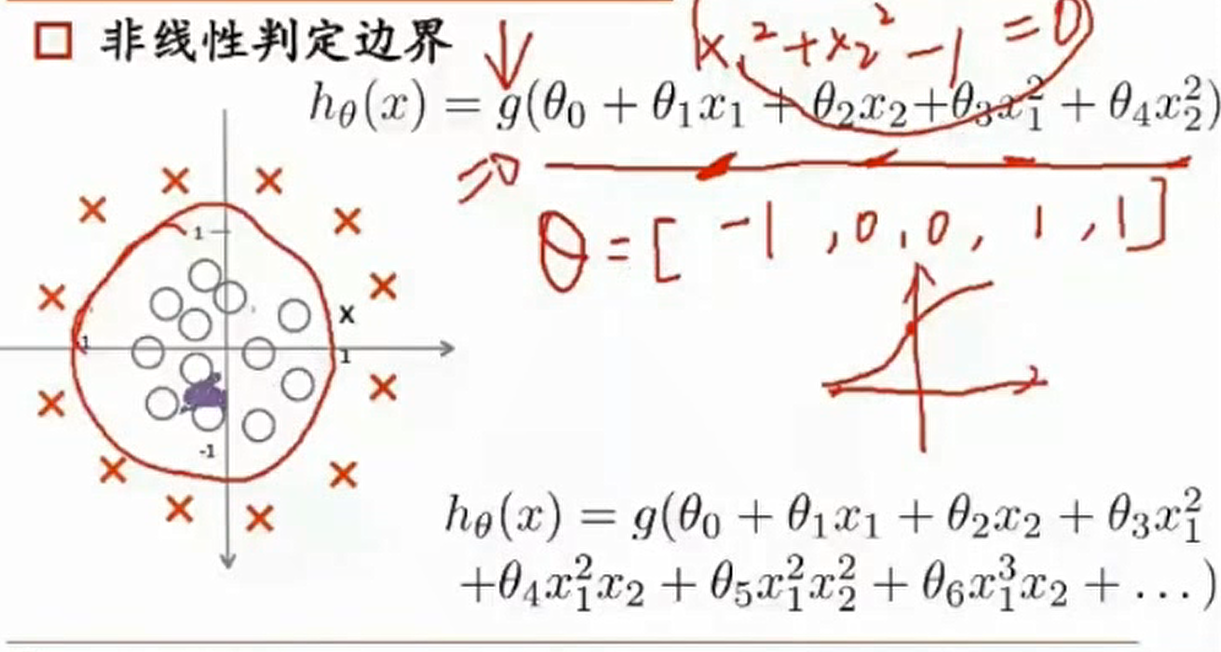 非线性判定边界
x₁² + x₂² − 1 = 0
h_θ(x) = g(θ₀ + θ₁x₁ + θ₂x₂+θ₃x₁² + θ₄x₂²)
θ = [ −1 , 0 , 0 , 1 , 1 ]
1
x
1
1
-1
h_θ(x) = g(θ₀ + θ₁x₁ + θ₂x₂ + θ₃x₁²
+θ₄x₁²x₂ + θ₅x₁²x₂² + θ₆x₁³x₂ + … )